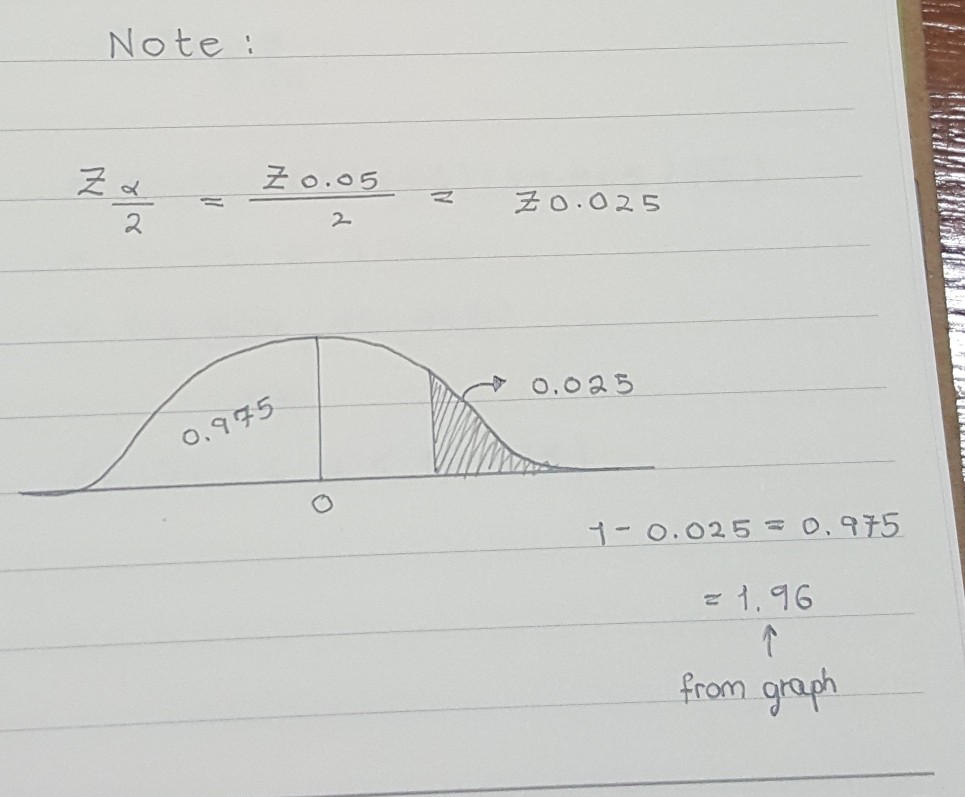 Note :
Z α/2 = Z 0.05/2 = Z 0.025
0.025
0.975
0
1 - 0.025 = 0.975
= 1.96
↑
from graph